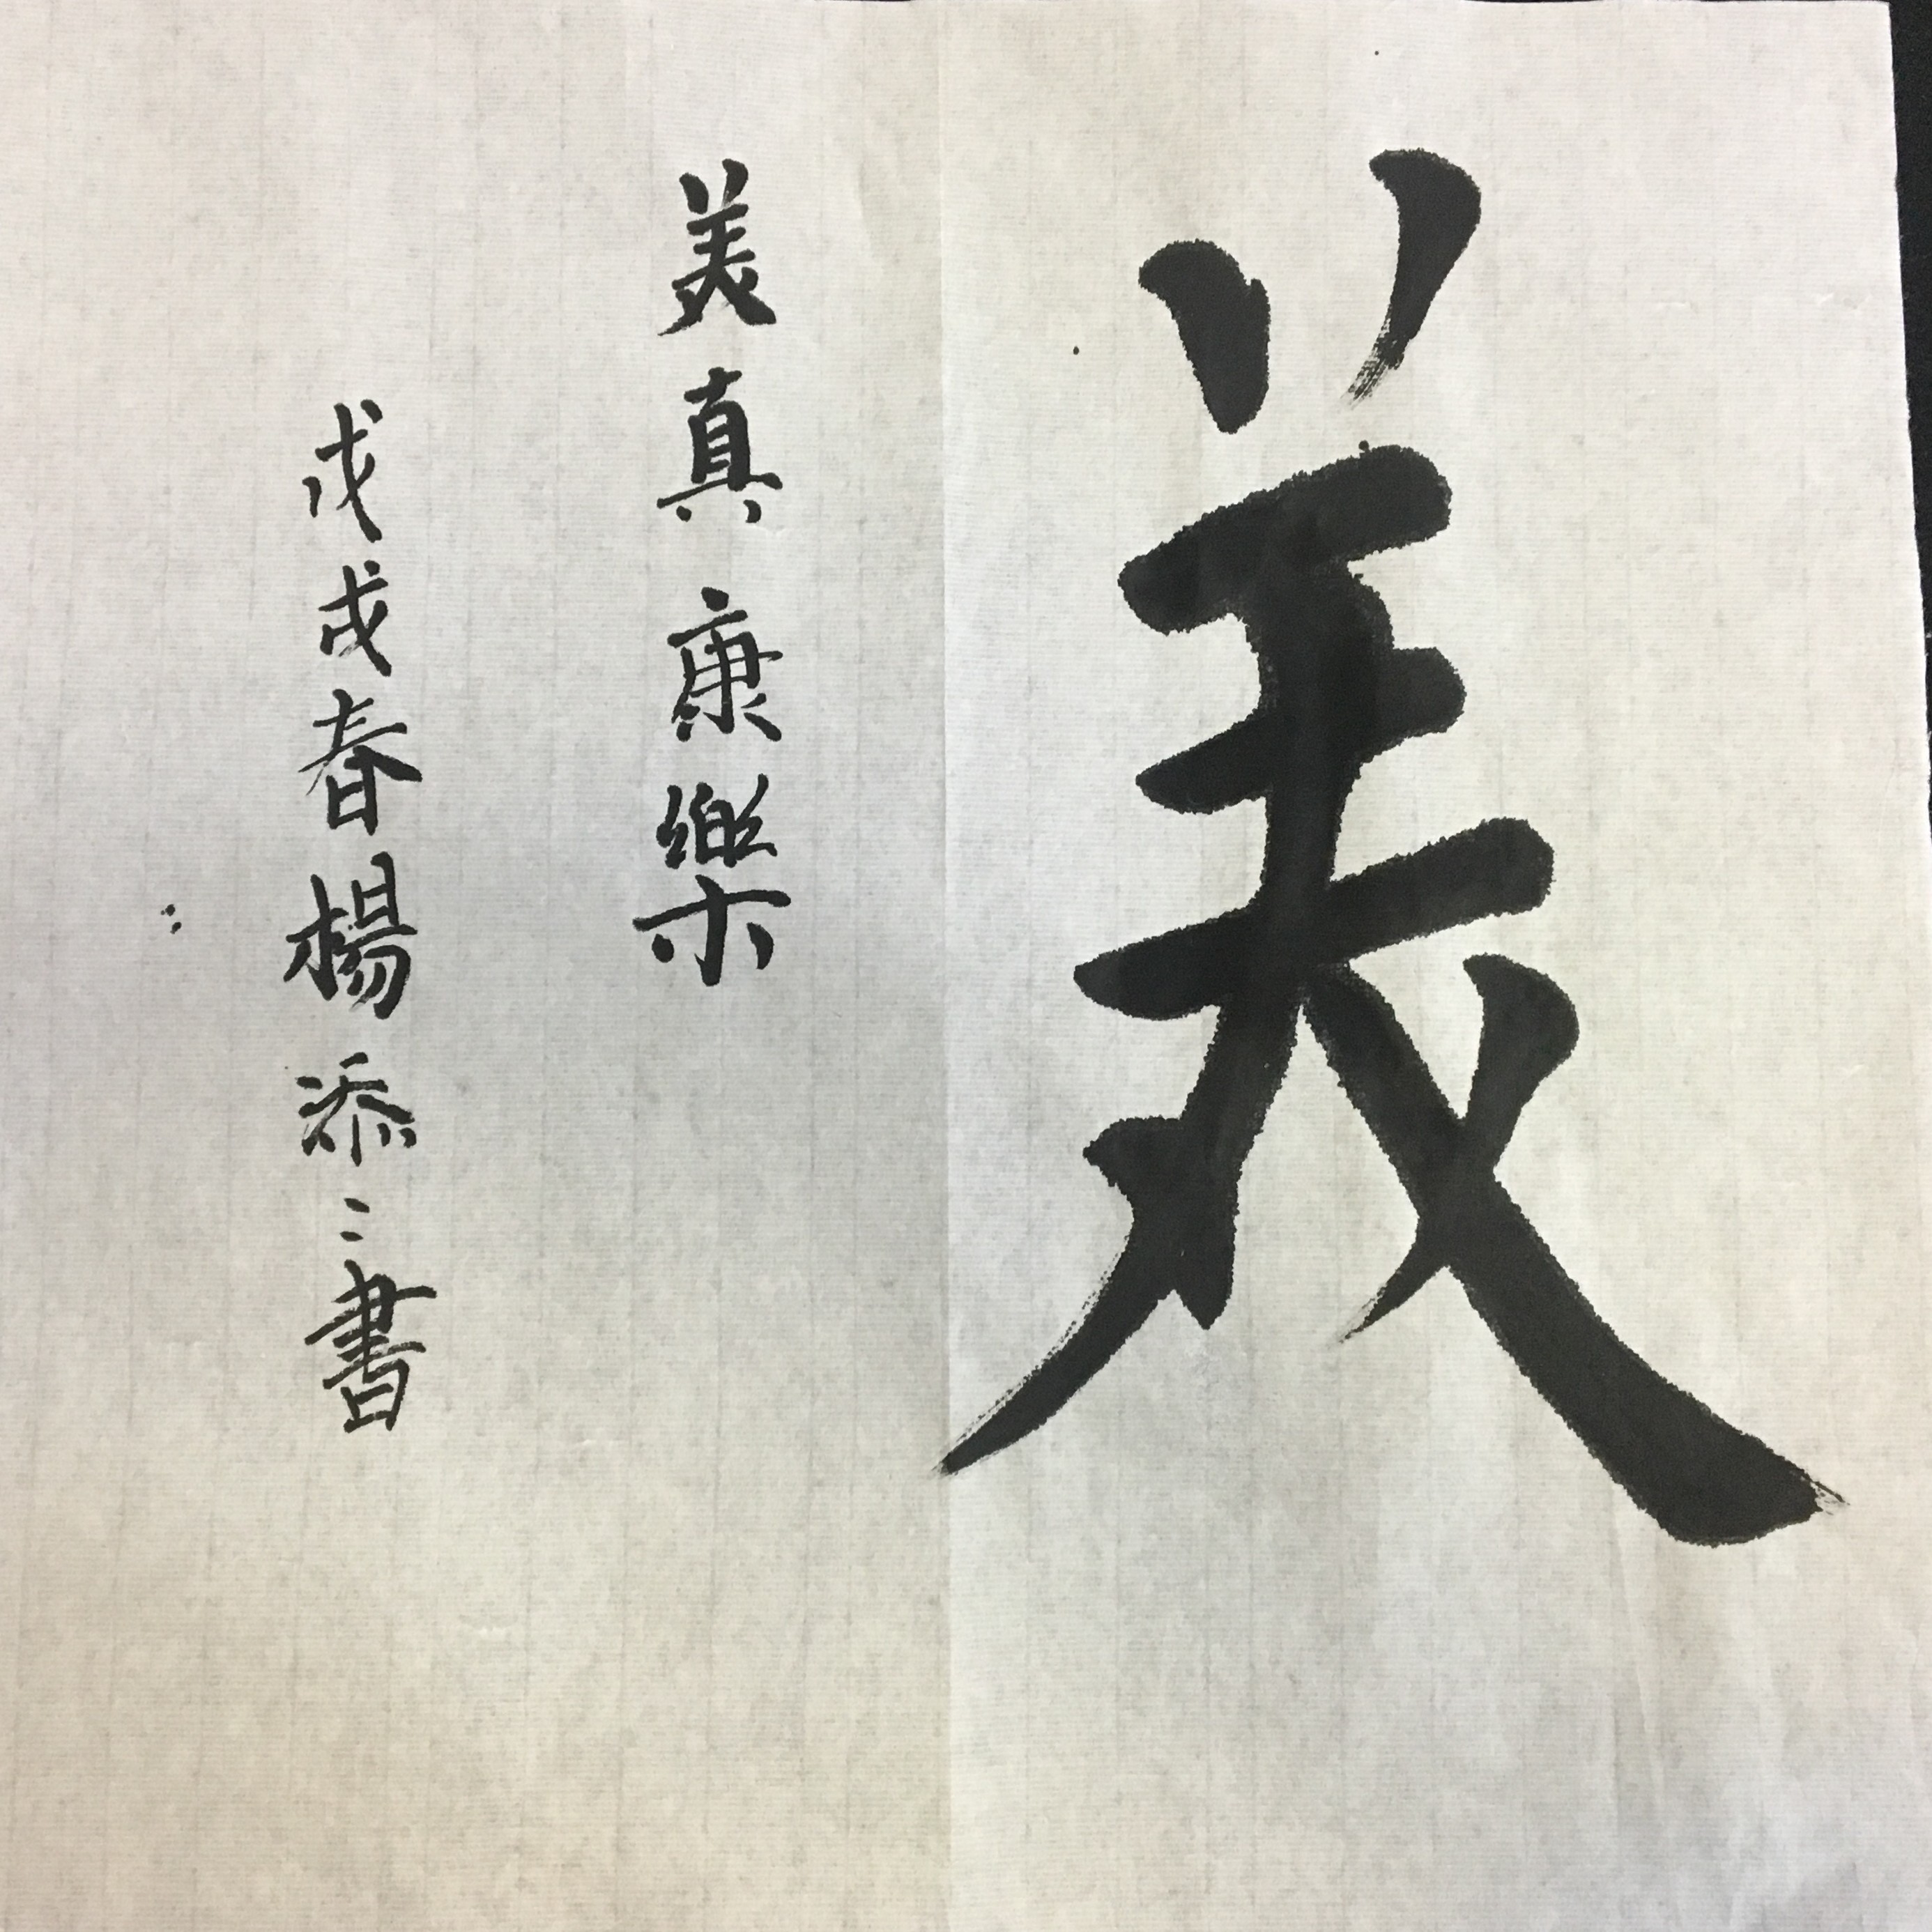 美
美真康樂
戊戌春楊添〻書